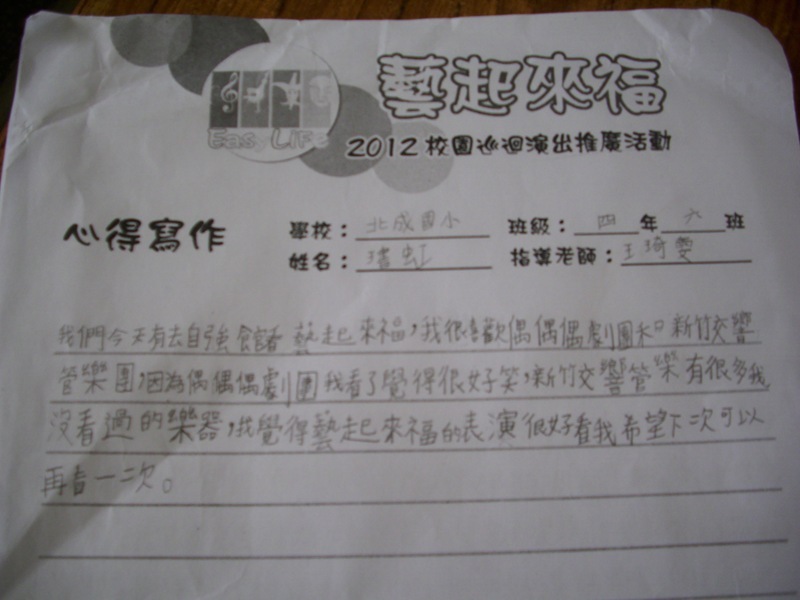 Easy Life
藝起來福
2012校園巡迴演出推廣活動
心得寫作
學校：北成國小 班級：四年六班
姓名：虹 指導老師：王琦雯
我們今天有去自強館看藝起來福，我很喜歡偶偶偶劇團和新竹交響
管樂團，因為偶偶偶劇團我看了覺得很好笑，新竹交響管樂有很多我
沒看過的樂器，我覺得藝起來福的表演很好看我希望下次可以
再看一二次。